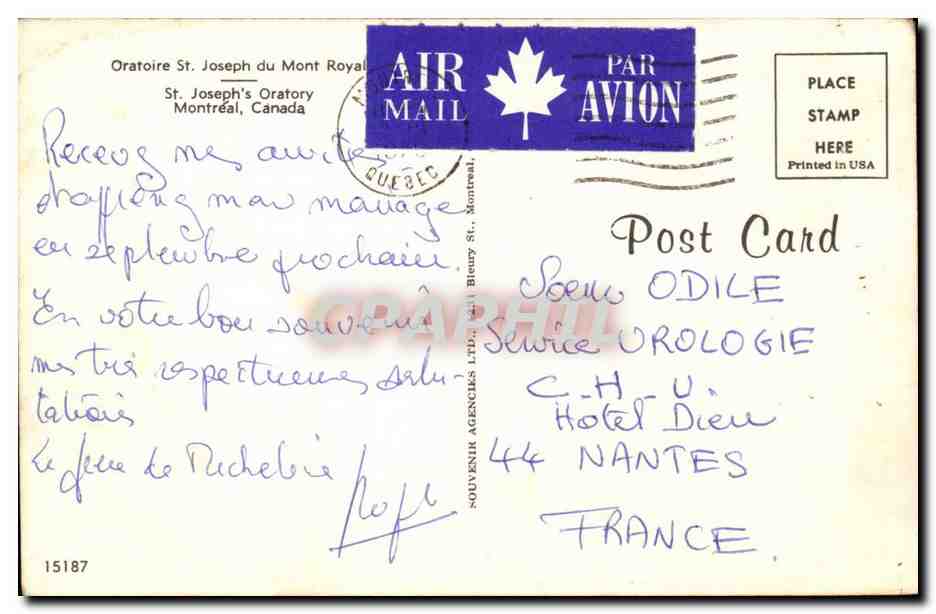 Oratoire St. Joseph du Mont Royal
St. Joseph's Oratory
Montréal, Canada
AIR MAIL
PAR AVION
QUEBEC
PLACE
STAMP
HERE
Printed in USA
Post Card
Recevez mes amitiés
mon mariage
en septembre prochain.
En votre bon souvenir
mes très respectueuses salu-
tations
Le frère de Micheline
SOUVENIR AGENCIES LTD., Bleury St., Montreal.
CPAPHIL
Soeur ODILE
Service UROLOGIE
C.H.U.
Hotel Dieu
44 NANTES
FRANCE
15187